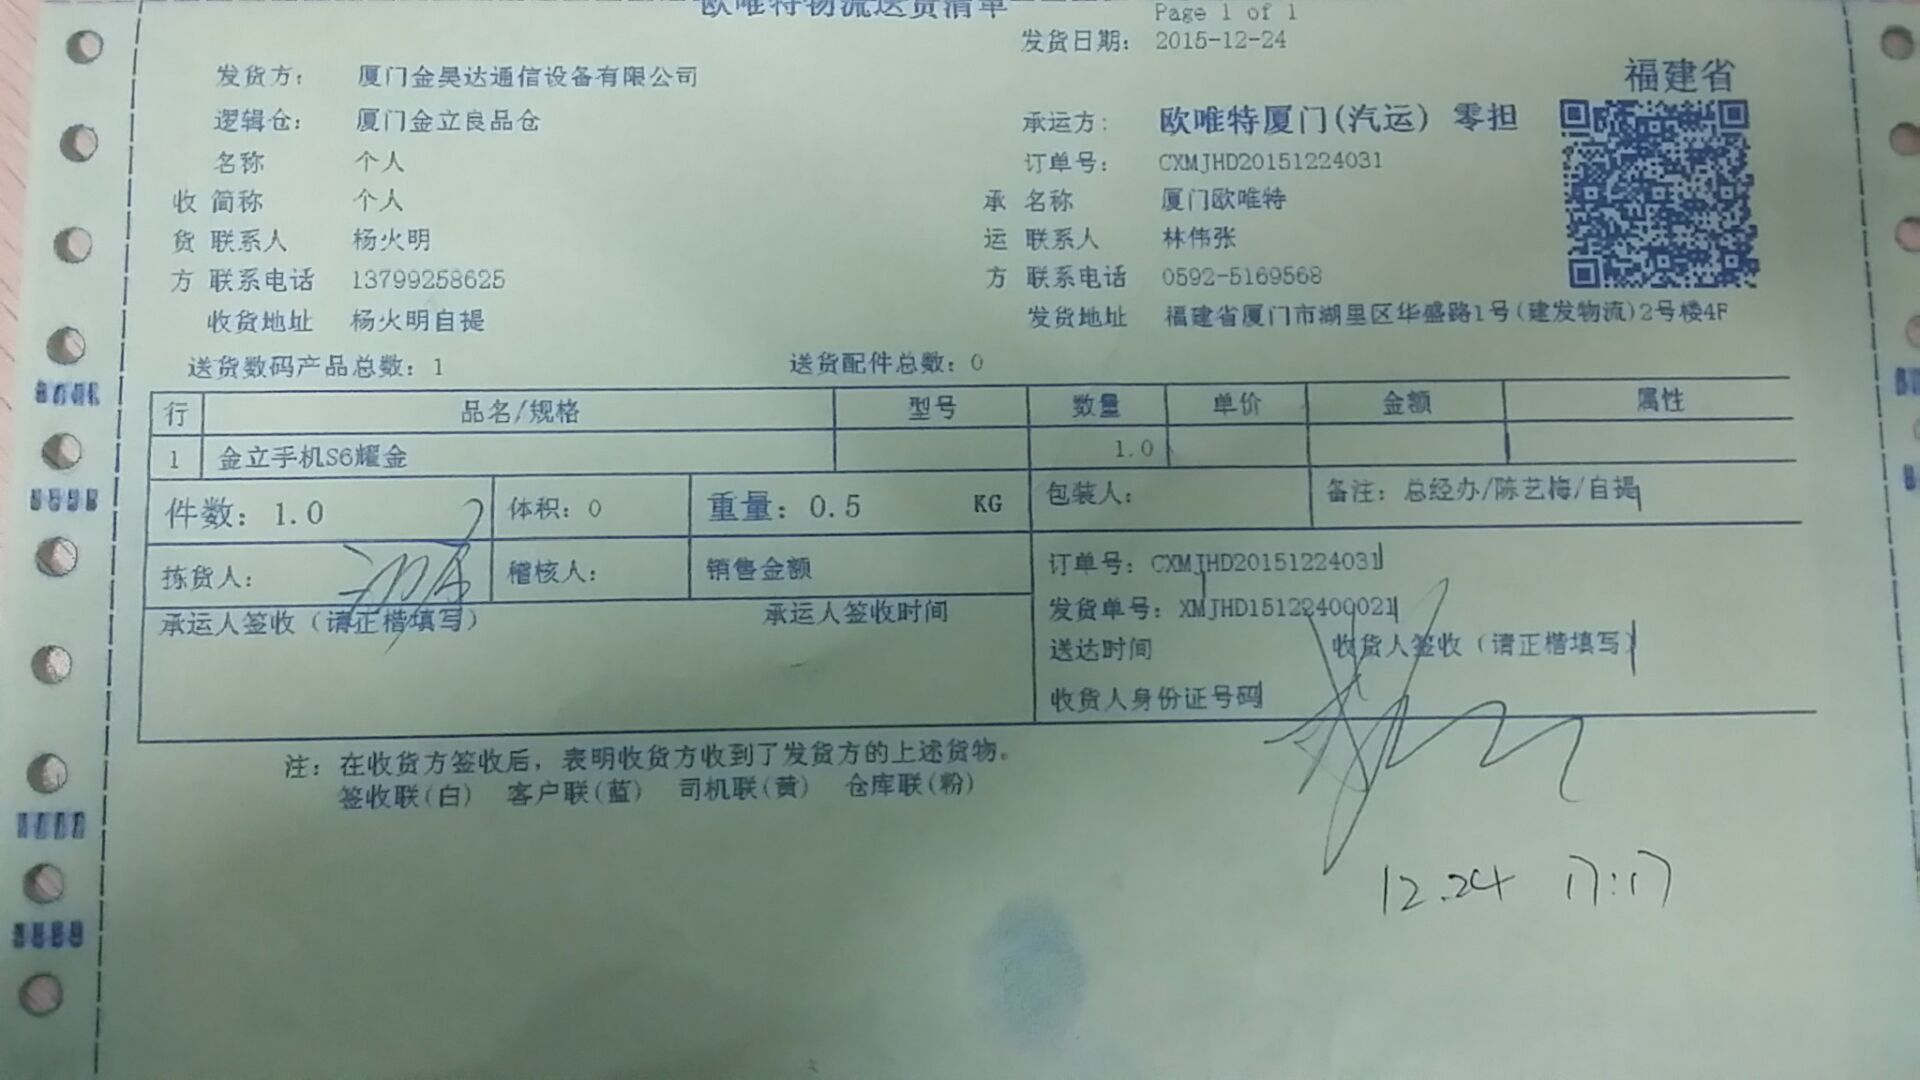 欧唯特物流送货清单
Page 1 of 1
发货日期: 2015-12-24
发货方: 厦门金昊达通信设备有限公司
福建省
逻辑仓: 厦门金立良品仓
承运方: 欧唯特厦门(汽运) 零担
名称 个人
订单号: CXMJHD20151224031
收 简称 个人
承 名称 厦门欧唯特
货 联系人 杨火明
运 联系人 林伟张
方 联系电话 13799258625
方 联系电话 0592-5169568
收货地址 杨火明自提
发货地址 福建省厦门市湖里区华盛路1号(建发物流)2号楼4F
送货数码产品总数: 1 送货配件总数: 0
行 品名/规格 型号 数量 单价 金额 属性
1 金立手机S6耀金 1.0
件数: 1.0 体积: 0 重量: 0.5 KG 包装人: 备注: 总经办/陈艺梅/自提
拣货人: 稽核人: 销售金额
订单号: CXMJHD20151224031
承运人签收（请正楷填写） 承运人签收时间
发货单号: XMJHD15122400021
送达时间 收货人签收（请正楷填写）
收货人身份证号码
注: 在收货方签收后，表明收货方收到了发货方的上述货物。
签收联(白) 客户联(蓝) 司机联(黄) 仓库联(粉)
12.24 17:17